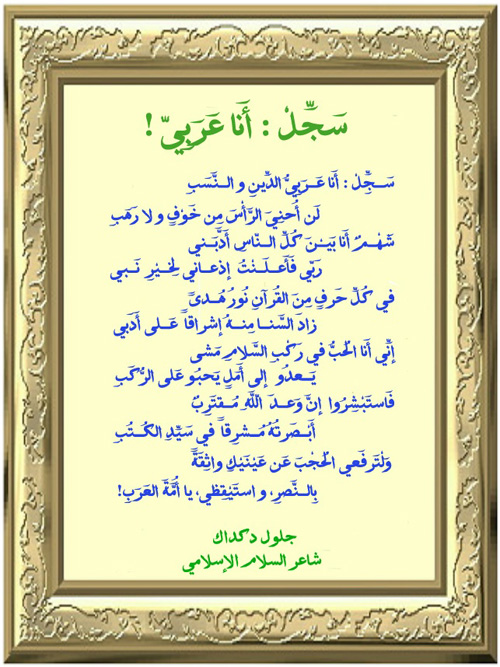 سَجِّلْ : أَنَا عَرَبِيّ !
سَـجِّلْ : أَنَا عَـرَبِيُّ الدِّينِ و الـنَّسَبِ
لَن أُحنِيَ الرَّأسَ مِن خَوفٍ و لا رَهَبِ
شَهْـمٌ أَنا بَيـنَ كُلِّ النّـاسِ أَدَّبَـني
رَبِّي فَأَعـلَـنْتُ إِذعـاني لِخَـيرِ نَـبي
في كُلِّ حَرفٍ مِنَ القُرآنِ نُورُ هُـدىً
زادَ السَّنـا مِنـهُ إِشراقاً عَـلى أَدَبي
إِنِّي أَنَا الحُبُّ في رَكْبِ السَّلامِ مَشى
يَـعدُو إِلى أَمَلٍ يَحبُو عَلى الرُّكَبِ
فَاستَبْشِرُوا إِنَّ وَعـدَ اللَّهِ مُـقتَرِبٌ
أَبْـصَرتُهُ مُـشرِقاً في سَيِّدِ الكُـتُبِ
وَلْتَرفَعي الحُجْبَ عَن عَينَيْكِ واثِقَةً
بِالـنَّصرِ، و استَيْقِظي، يا أُمَّةَ العَرَبِ!
جلول دكداك
شاعر السلام الإسلامي